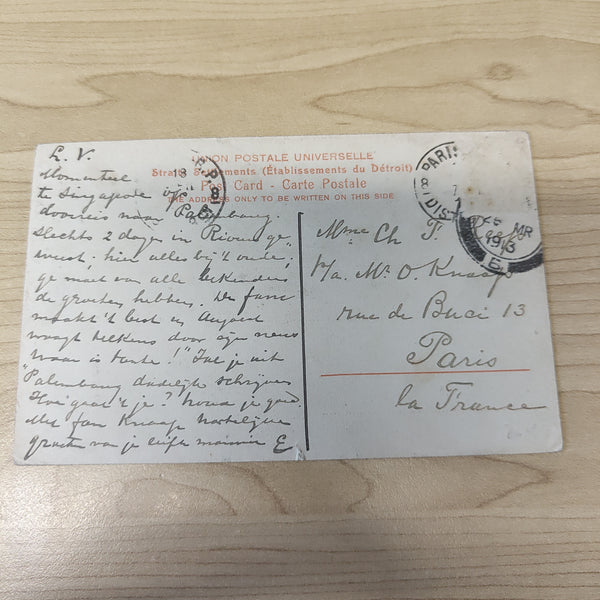 UNION POSTALE UNIVERSELLE
Straits Settlements. (Établissements du Détroit)
Post Card - Carte Postale
THE ADDRESS ONLY TO BE WRITTEN ON THIS SIDE
PARIS
DIST
MR
1913
E
L. V.
Momenteel
te Singapore op
doorreis naar Palembang.
Slechts 2 dagen in Riouw ge
weest; hier alles bij 't oude;
ge moet van alle bekenden
de groeten hebben. De fam
maakt 't best en August
vraagt telkens door zijn neus
waar is tante! Zal je uit
Palembang dadelijk schrijven
Hoe gaat 't je? houd je goed.
Met fam Knaap hartelijke
groeten van je liefh. E
Mme Ch. F.
p/a. Mr. O. Knaap
rue de Buci 13
Paris
la France